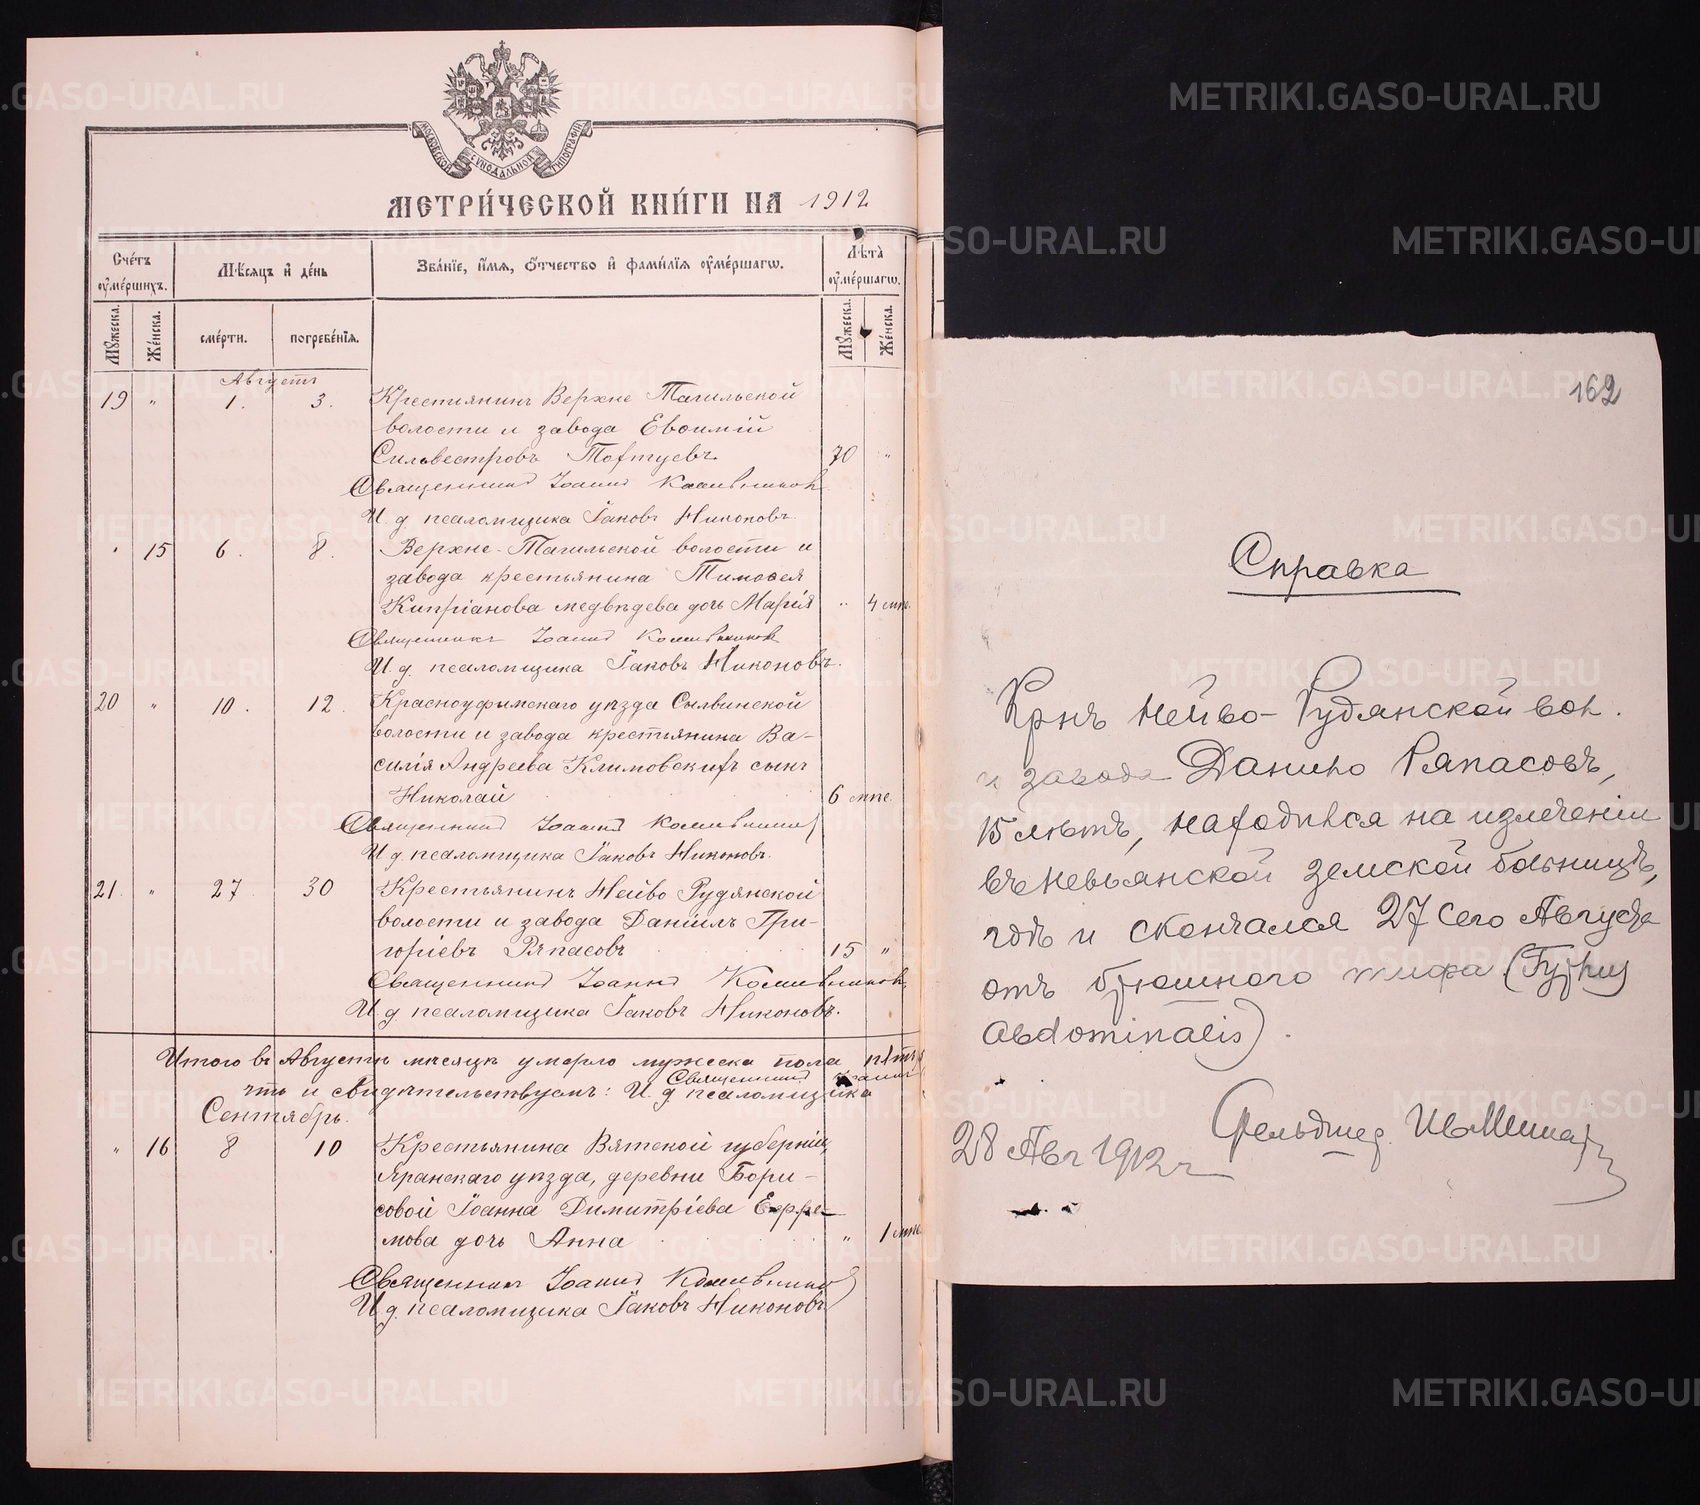 МОСКОВСКОЙ СѴНОДАЛЬНОЙ ТИПОГРАФІИ
МЕТРИ́ЧЕСКОЙ КНИ́ГИ НА 1912
Сче́тъ ᲂу҆ме́ршихъ.
Мѣ́сяцъ и҆ де́нь
Зва́нїе, и҆́мѧ, ѻ҆́тчество и҆ фами́лїѧ ᲂу҆ме́ршагѡ.
Лѣ́та ᲂу҆ме́ршагѡ.
Мꙋ́жеска.
Же́нска.
сме́рти.
погребе́нїѧ.
Мꙋ́жеска.
Же́нска.
Августъ
19 " 1. 3. Крестьянинъ Верхне Тагильской
волости и завода Евѳимій
Сильвестровъ 70 "
Священникъ Іоаннъ
И. д. псаломщика Іаковъ Никоновъ.
" 15 6. 8. Верхне-Тагильской волости и
завода крестьянина Тимоѳея
Кипріанова Медвѣдева дочь Марія " 4 мѣс.
Священникъ Іоаннъ
И д. псаломщика Іаковъ Никоновъ.
20 " 10. 12. Красноуфимскаго уѣзда Сылвинской
волости и завода крестьянина Ва-
силія Андреева Климовскихъ сынъ
Николай 6 мѣс.
Священникъ Іоаннъ
И д. псаломщика Іаковъ Никоновъ.
21. " 27 30 Крестьянинъ Нейво Рудянской
волости и завода Даніилъ Гри-
горіевъ Ряпасовъ 15 "
Священникъ Іоаннъ
И д псаломщика Іаковъ Никоновъ.
Итого въ Августѣ мѣсяцѣ умерло мужеска пола
что и свидѣтельствуемъ: Священникъ Іоаннъ И. д. псаломщика
Сентябрь.
" 16 8 10 Крестьянина Вятской губерніи,
Яранскаго уѣзда, деревни Бори-
совой Іоанна Димитріева Ефре-
мова дочь Анна " 1 мѣс.
Священникъ Іоаннъ
И д. псаломщика Іаковъ Никоновъ
162
Справка
Крнъ Нейво-Рудянской вол.
и завода Данило Ряпасовъ,
15 лѣтъ, находился на излеченіи
въ Невьянской земской больницѣ,
гдѣ и скончался 27 сего Августа
отъ брюшного тифа (
Abdominalis).
Фельдшер.
28 Авг 1912 г
METRIKI.GASO-URAL.RU